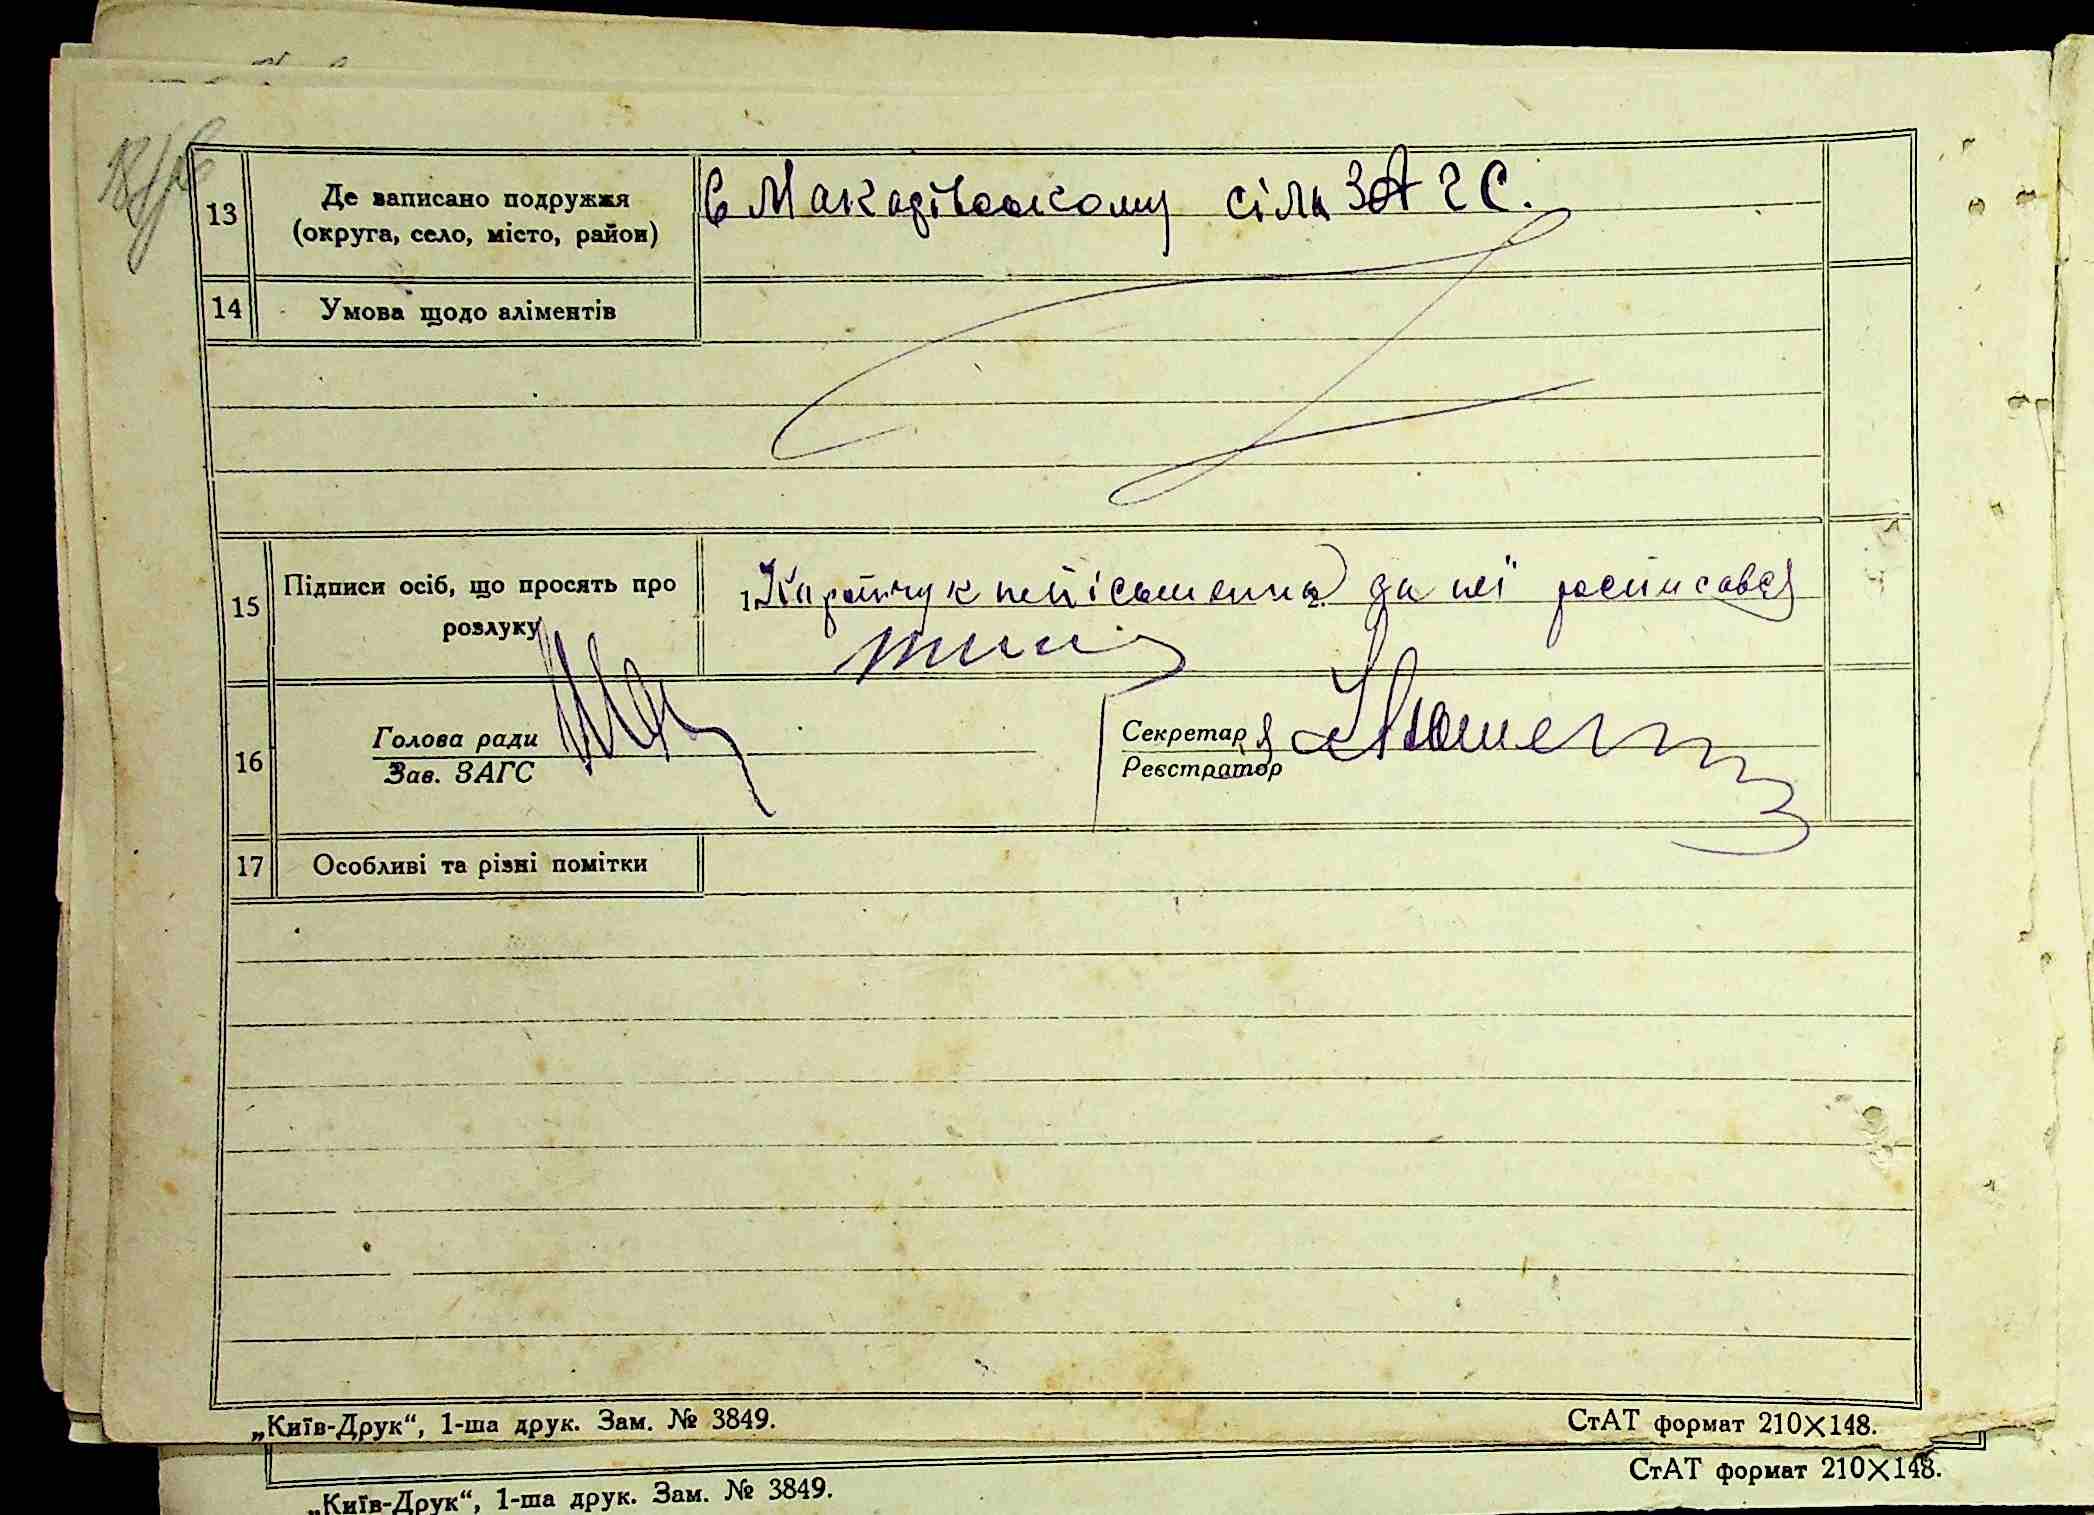 13
Де записано подружжя
(округа, село, місто, район)
в Макарівському сіль ЗАГС.
14
Умова щодо аліментів
15
Підписи осіб, що просять про
розлуку
1.
за неї росписався
16
Голова ради
Зав. ЗАГС
Секретар
Реєстратор
17
Особливі та різні помітки
„Київ-Друк“, 1-ша друк. Зам. № 3849.
СтАТ формат 210×148.
СтАТ формат 210×148.
„Київ-Друк“, 1-ша друк. Зам. № 3849.